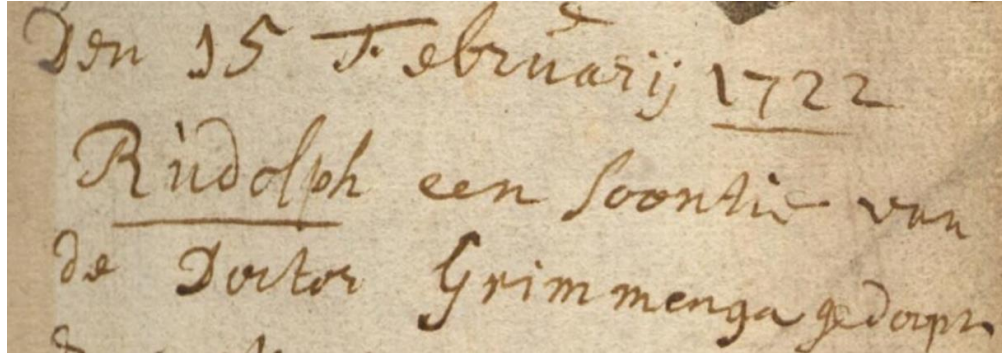 Den 15 Februarij 1722
Rudolph een soontie van
de Doctor Grimmenga gedoopt